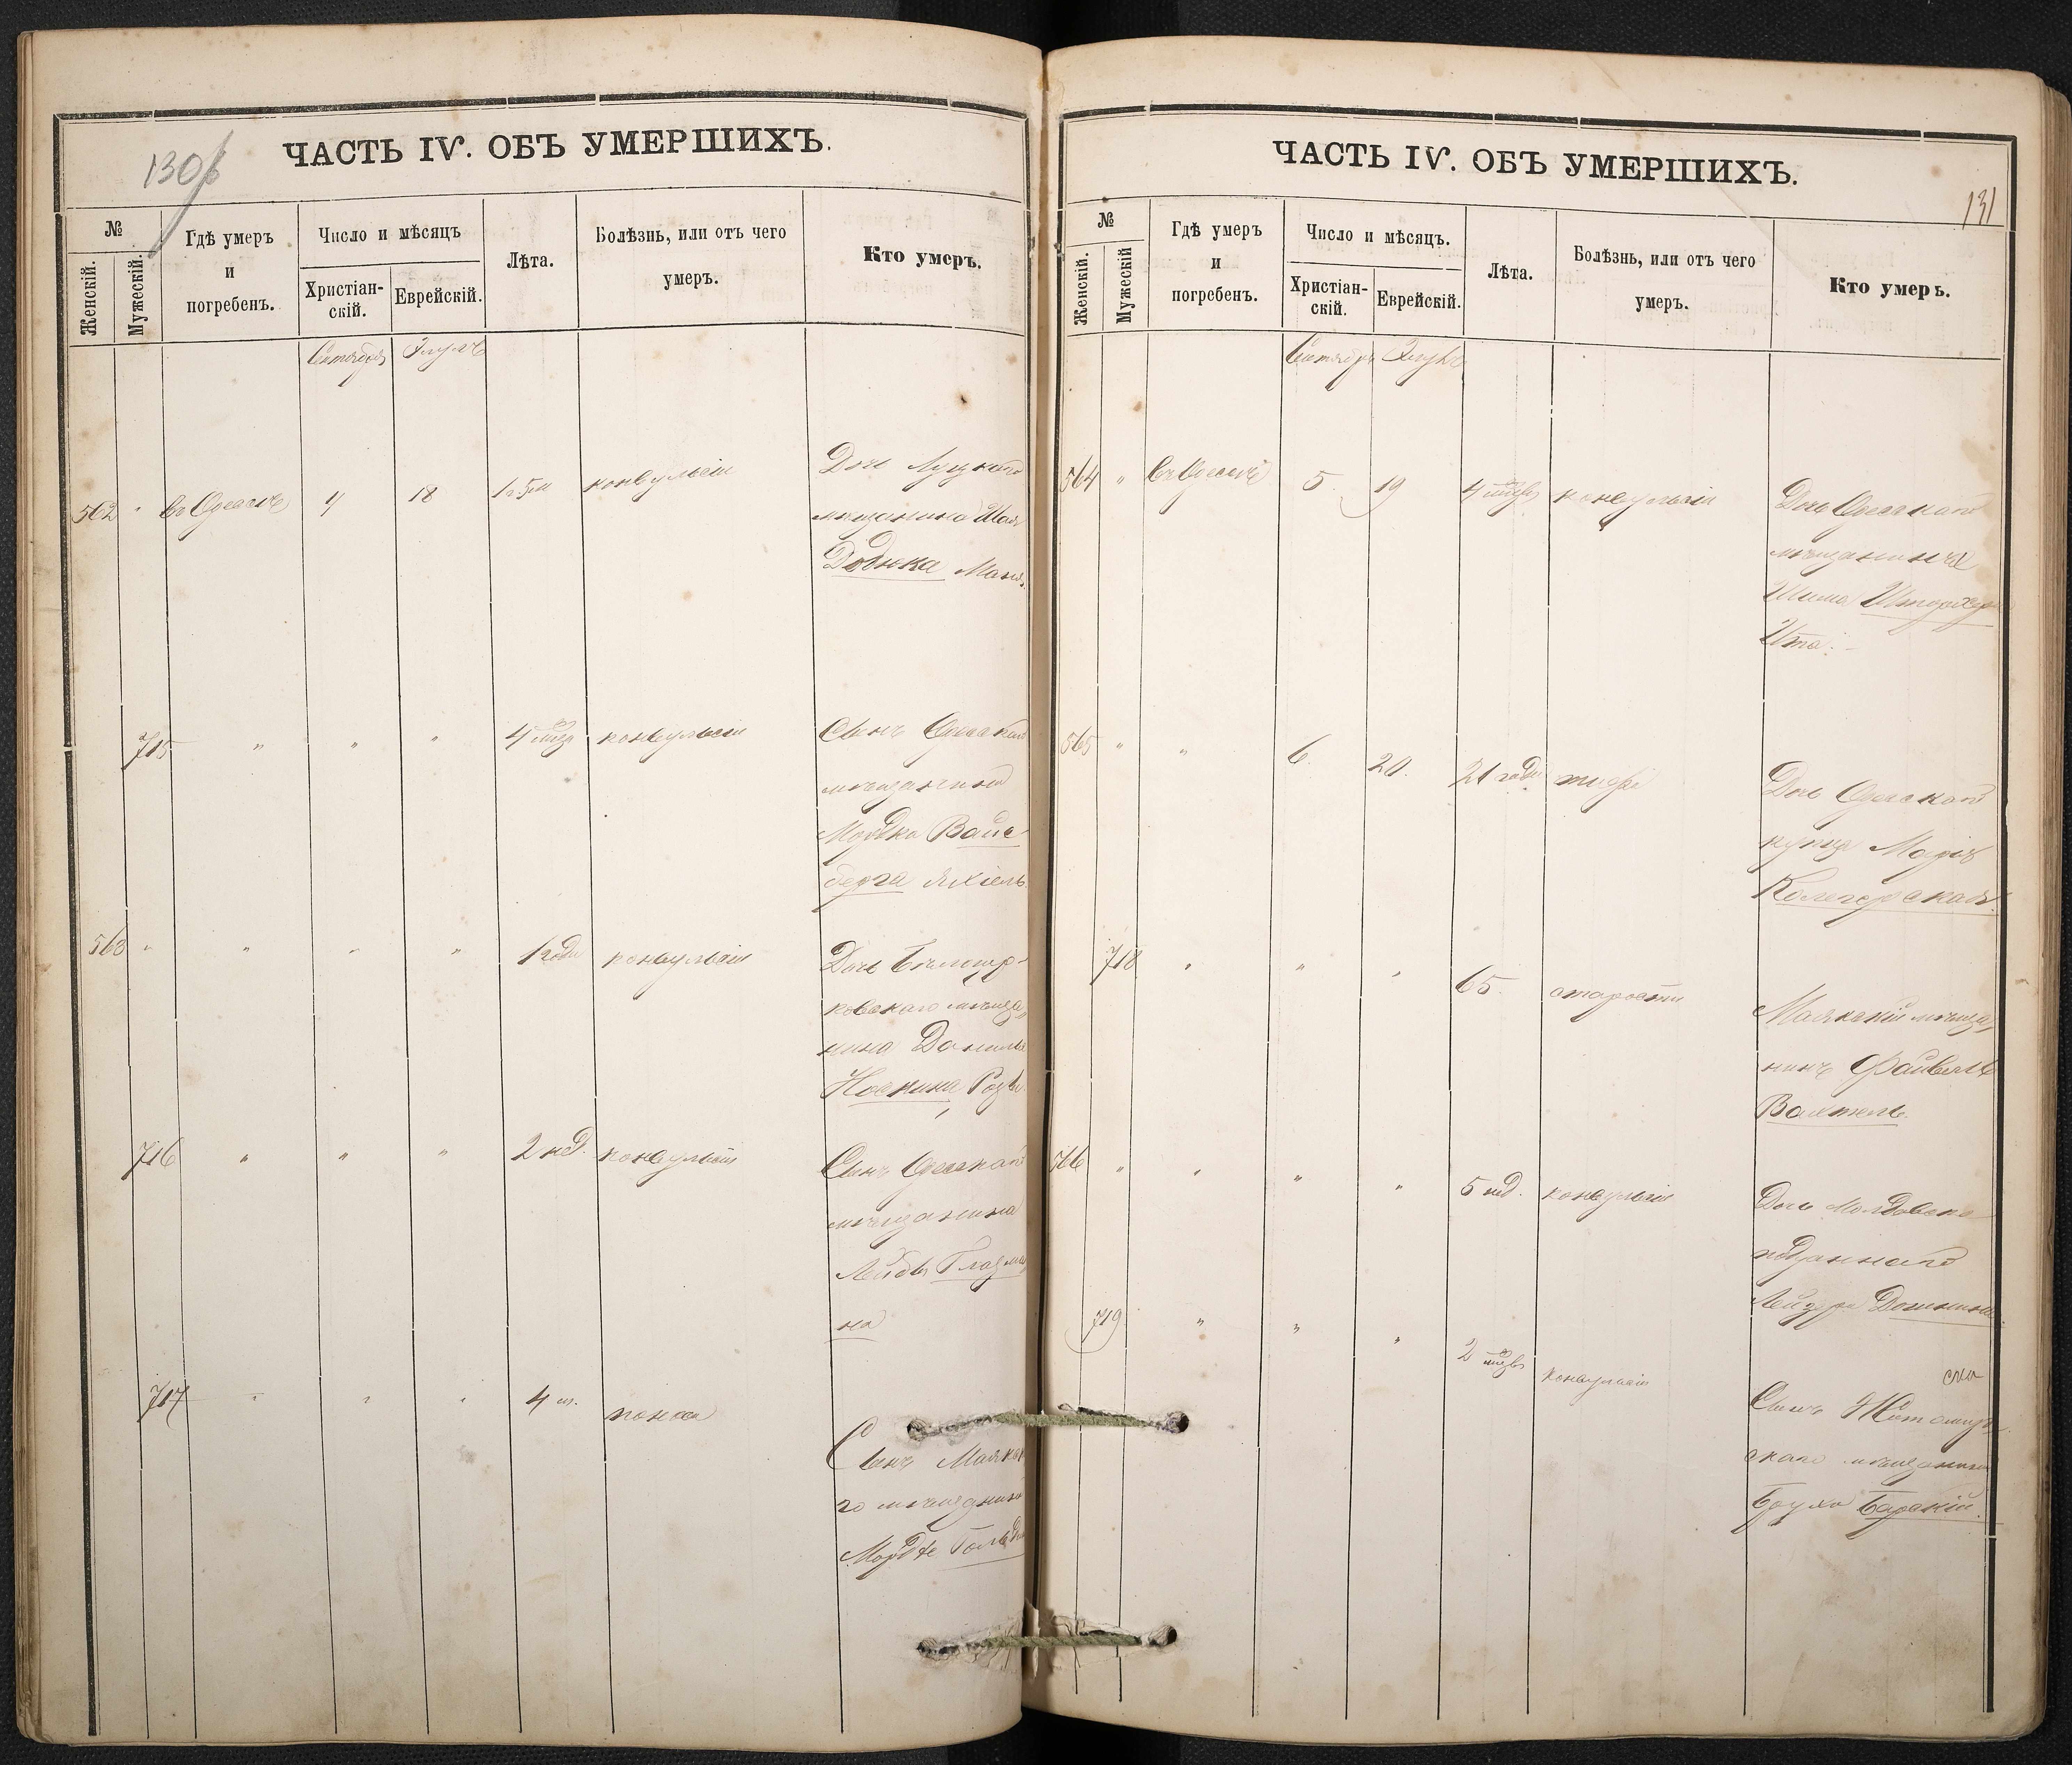 130
ЧАСТЬ IV. ОБЪ УМЕРШИХЪ.
№
Женскій.
Мужескій.
Гдѣ умеръ
и
погребенъ.
Число и мѣсяцъ
Христіан-
скій.
Еврейскій.
Лѣта.
Болѣзнь, или отъ чего
умеръ.
Кто умеръ.
Сентября Элулъ
562 " въ Одессѣ 4 18 1 г 5 м конвульсіи
Дочь Луцкого
мещанина Шая
Додюка Маня
715 " " " 4 мѣц конвульсіи
Сынъ Одесского
мѣщанина
Мордка Вайс
берга Яхіель
563 " " " " 1 годъ конвульсіи
Дочь Бѣлоцер-
ковскаго мѣща-
нина Даниль
Носкина Розы
716 " " " 2 нед. конвульсіи
Сынъ Одесскаго
мѣщанина
Лейбы Глазма
на
717 " " " 4 м. поноса
Сынъ Маякска
го мѣщанина
Мордке Гольд
131
ЧАСТЬ IV. ОБЪ УМЕРШИХЪ.
№
Женскій.
Мужескій
Гдѣ умеръ
и
погребенъ.
Число и мѣсяцъ.
Христіан-
скій.
Еврейскій.
Лѣта.
Болѣзнь, или отъ чего
умеръ.
Кто умеръ.
Сентябрь Элулъ
564 " въ Одессѣ 5. 19 4 мѣц конвульсіи
Дочь Одесскаго
мѣщанина
Шима
Ита.
565 " " 6. 20. 21 годъ тифъ
Дочь Одесскаго
купца Марія
718 " " " 65. старости
Маякскій мѣща-
нинъ Файвель
566 " " " " 5 нед. конвульсіи
Дочь Молдавско
подданнаго
Лейзера
719 " " " 2 мѣц конвульсіи
Сынъ Житомир
скаго мѣщанина
Бруха Барскій.